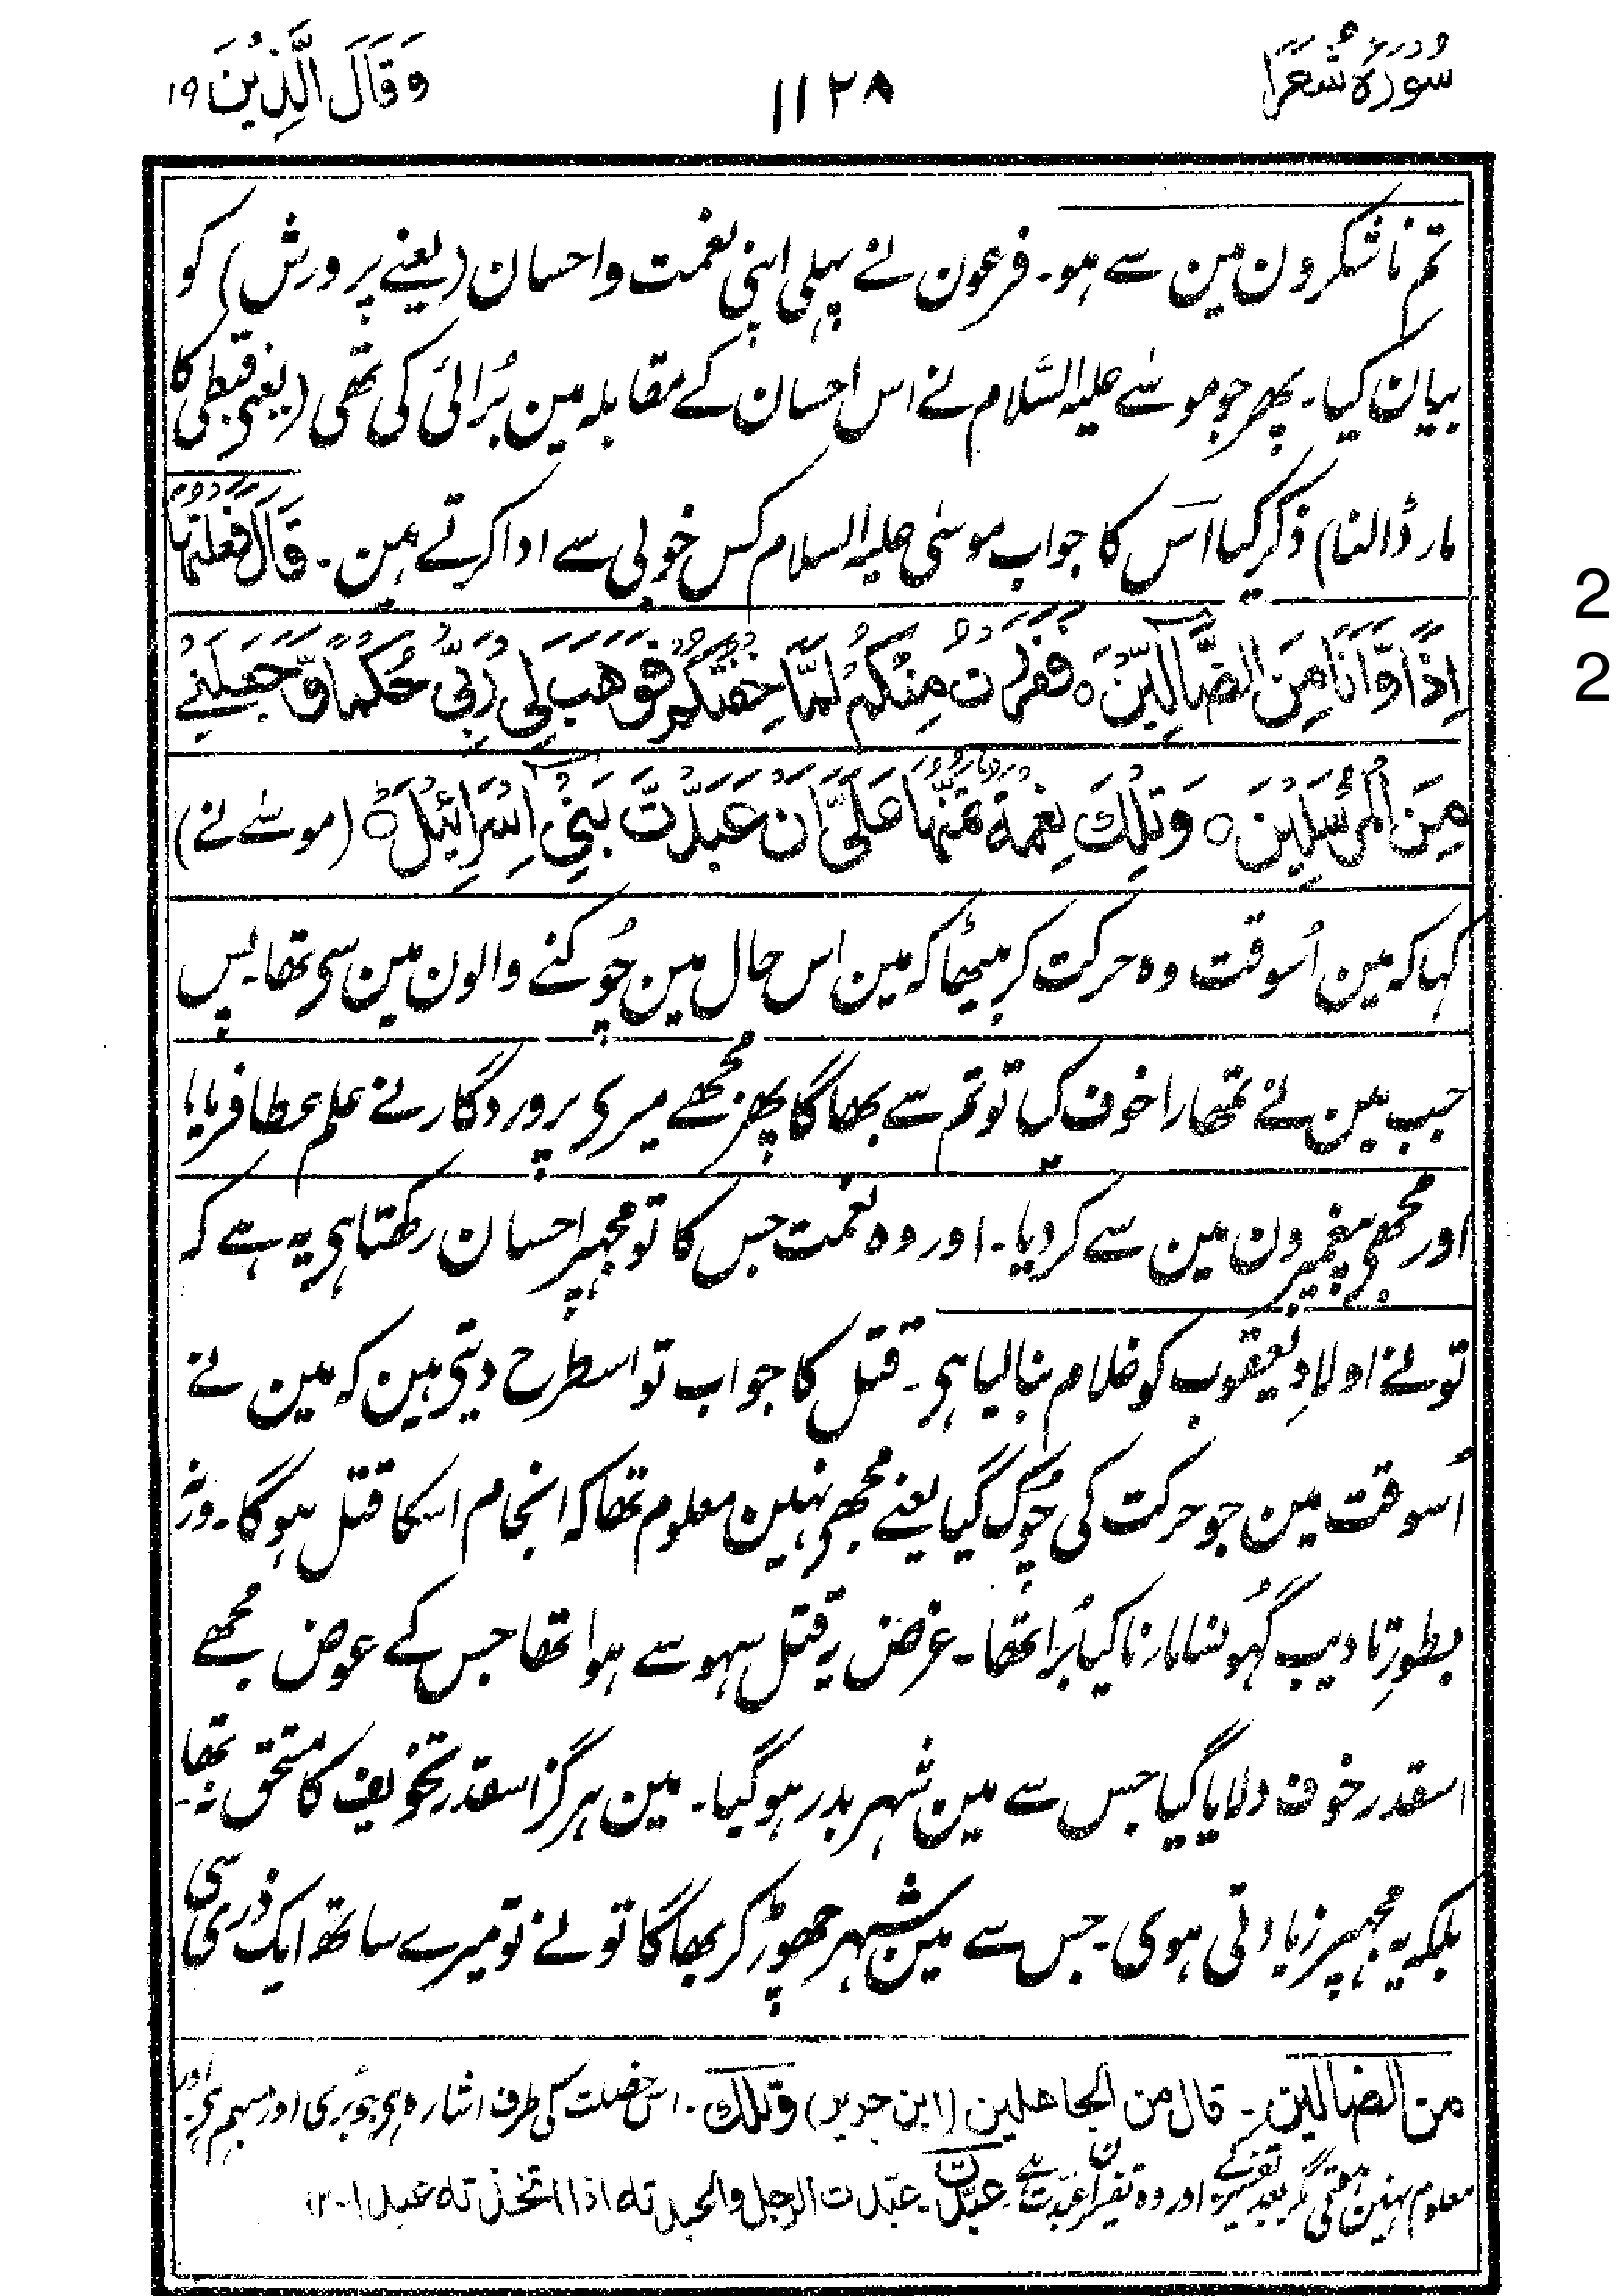 سُورَةُ شُعَرَا
١١٢٨
وَقَالَ الَّذِيْنَ ١٩
تم ناشکرون مین سے ہو۔ فرعون نے پہلی اپنی نعمت و احسان (یعنے پرورش) کو
بیان کیا۔ پھر جو موسٰے علیہ السَّلام نے اس احسان کے مقابلہ مین بُرائی کی تھی (یعنی قبطی کا
مار ڈالنا) ذکر کیا اس کا جواب موسٰی علیہ السلام کس خوبی سے ادا کرتے ہین۔ قَالَ فَعَلْتُهَا
اِذًا وَّاَنَا مِنَ الضَّآلِّيْنَ ۝ فَفَرَرْتُ مِنْكُمْ لَمَّا خِفْتُكُمْ فَوَهَبَ لِيْ رَبِّيْ حُكْمًا وَّجَعَلَنِيْ
مِنَ الْمُرْسَلِيْنَ ۝ وَتِلْكَ نِعْمَةٌ تَمُنُّهَا عَلَيَّ اَنْ عَبَّدْتَّ بَنِيْٓ اِسْرَائِيْلَ ۝ (موسٰے نے)
کہا کہ مین اُسوقت وہ حرکت کر بیٹھا کہ مین اس حال مین چُوکنے والون مین سی تھا۔ پس
جب مین نے تمھارا خوف کیا تو تم سے بھاگا پھر مجُھے میری پروردگار نے علم عطا فرمایا
اور مجُھی پیغمبرون مین سے کر دیا۔ اور وہ نعمت جس کا تو مجہپر احسان رکھتا ہی یہ ہے کہ
تو نے اولادِ یعقوب کو غلام بنا لیا ہی۔ قتل کا جواب تو اسطرح دیتی ہین کہ مین نے
اُسوقت مین جو حرکت کی چُوک گیا یعنے مجُھی نہین معلوم تھا کہ انجام اسکا قتل ہوگا۔ ورنہ
بطورِ تادیب گہُونسا مارنا کیا بُرا تھا۔ غرض یہ قتل سہو سے ہوا تھا جس کے عوض مجُھے
اسقدر خوف دلایا گیا جس سے مین شہر بدر ہو گیا۔ مین ہرگز اسقدر تخویف کا مستحق نہ تھا۔
بلکہ یہ مجہپر زیادتی ہوی۔ جس سے مین شہر چھوڑ کر بھاگا تو نے تو میرے ساتھ ایک ذری سی
من الضالین۔ قال من الجاھلین (ابن جریر) وتلک۔ اس خصلت کی طرف اشارہ ہی جو بُری اور مبہم ہی اور
معلوم نہین ہوتی مگر بعد تفسیر کے اور وہ تفسیر ان عبدت ہے عبدت۔ عبّدت الرجل واعبدتہ اذا اتخذتہ عبدا۔
2
2